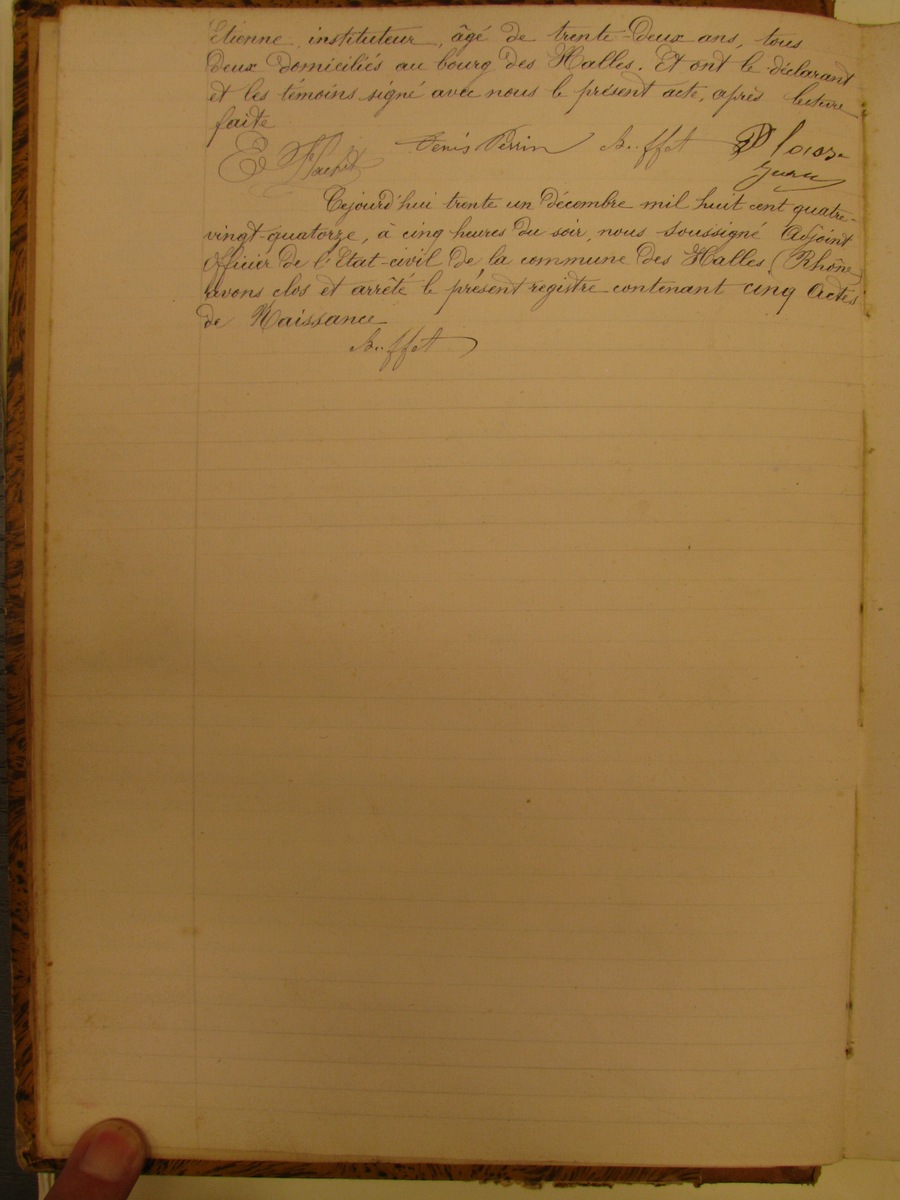 Etienne, instituteur, âgé de trente-deux ans, tous
deux domiciliés au bourg des Halles. Et ont le déclarant
et les témoins signé avec nous le présent acte, après lecture
faite
Denis Perrin
Cejourd'hui trente un décembre mil huit cent quatre-
vingt-quatorze, à cinq heures du soir, nous soussigné Adjoint
Officier de l'Etat-civil de la commune des Halles (Rhône)
avons clos et arrêté le présent registre contenant cinq Actes
de Naissance